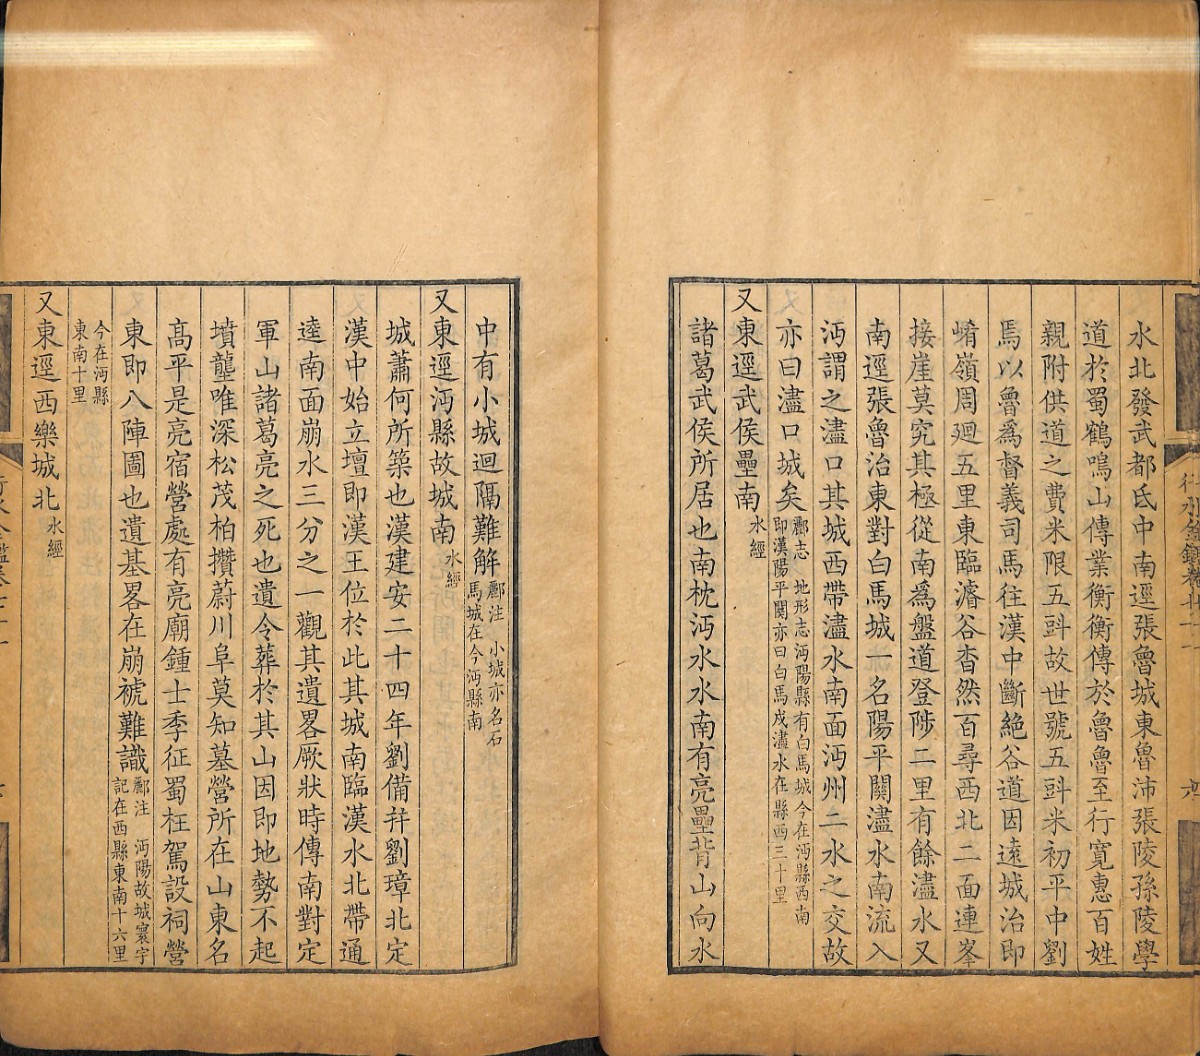 水北發武都氐中南逕張魯城東魯沛張陵孫陵學
道於蜀鶴鳴山傳業衡衡傳於魯魯至行寬惠百姓
親附供道之費米限五㪷故世號五㪷米初平中劉
焉以魯爲督義司馬往漢中斷絶谷道因逺城治即
崤嶺周廻五里東臨濬谷杳然百尋西北二面連峯
接崖莫究其極從南爲盤道登陟二里有餘濜水又
南逕張魯治東對白馬城一名陽平關濜水南流入
沔謂之濜口其城西帶濜水南面沔州二水之交故
亦曰濜口城矣
酈志 地形志沔陽縣有白馬城今在沔縣西南
即漢陽平關亦曰白馬戍濜水在縣西三十里
又東逕武侯壘南水經
諸葛武侯所居也南枕沔水水南有亮壘背山向水
中有小城迴隔難解
酈注 小城亦名石
馬城在今沔縣南
又東逕沔縣故城南水經
城蕭何所築也漢建安二十四年劉備幷劉璋北定
漢中始立壇即漢王位於此其城南臨漢水北帶通
逵南面崩水三分之一觀其遺畧厥狀時傳南對定
軍山諸葛亮之死也遺令葬於其山因即地勢不起
墳壟唯深松茂柏攢蔚川阜莫知墓營所在山東名
高平是亮宿營處有亮廟鍾士季征蜀枉駕設祠營
東即八陣圖也遺基畧在崩褫難識
酈注 沔陽故城寰宇
記在西縣東南十六里
今在沔縣
東南十里
又東逕西樂城北水經